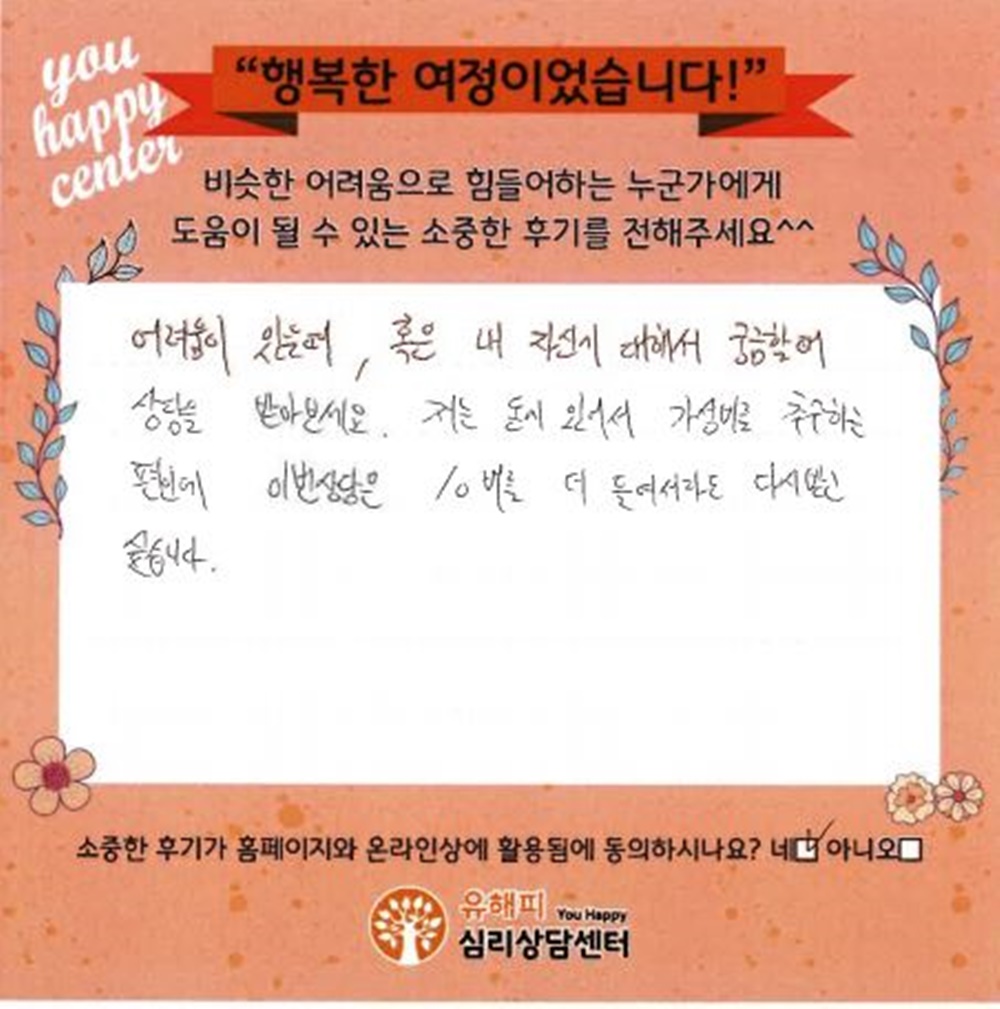 you
happy
center
“행복한 여정이었습니다!”
비슷한 어려움으로 힘들어하는 누군가에게
도움이 될 수 있는 소중한 후기를 전해주세요^^
어려움이 있는때, 혹은 내 자신에 대해서 궁금할때
상담을 받아보세요. 저는 돈에 있어서 가성비를 추구하는
편인데 이번상담은 10배를 더 들여서라도 다시받고
싶습니다.
소중한 후기가 홈페이지와 온라인상에 활용됨에 동의하시나요? 네 아니오
유해피 You Happy
심리상담센터